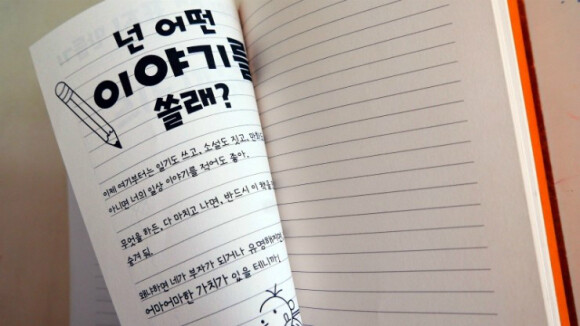 넌 어떤
이야기를
쓸래?
이제 여기부터는 일기도 쓰고, 소설도 짓고, 만화도
아니면 너의 일상 이야기를 적어도 좋아.
무엇을 하든, 다 마치고 나면, 반드시 이 책을
숨겨 둬.
왜냐하면 네가 부자가 되거나 유명해지면
어마어마한 가치가 있을 테니까!